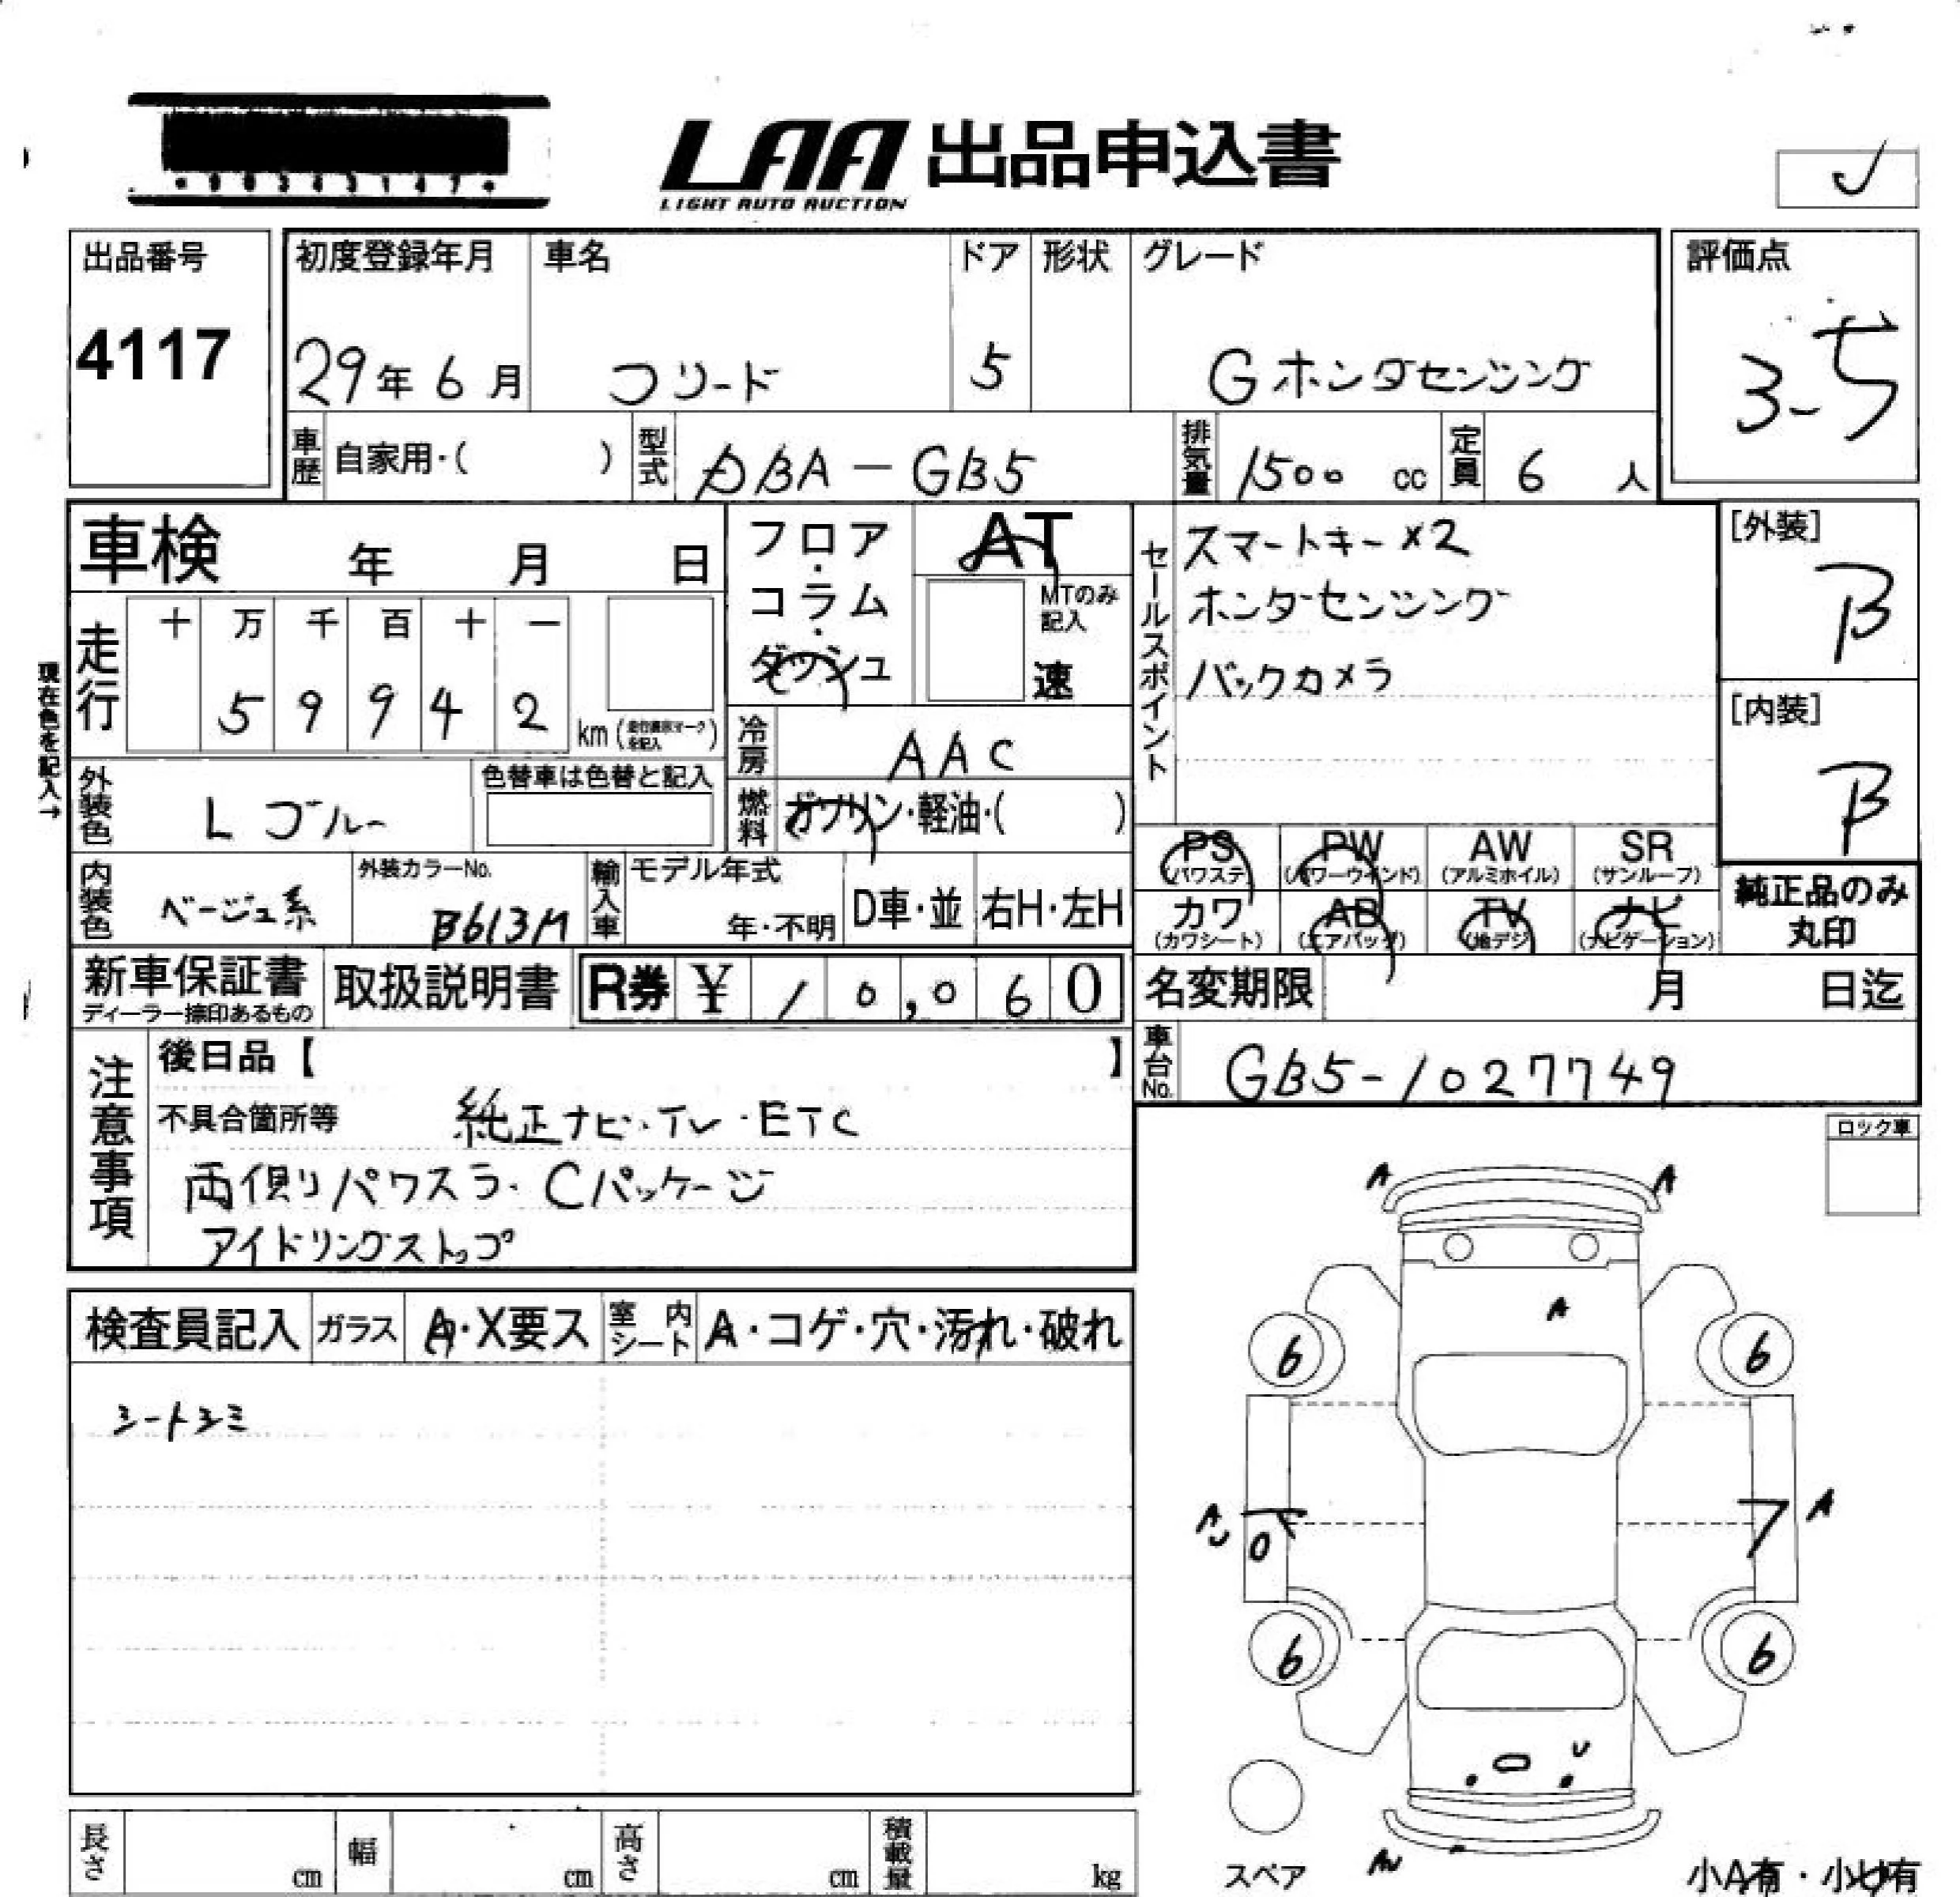 LAA 出品申込書
LIGHT AUTO AUCTION
出品番号
4117
初度登録年月
29年6月
車名
フリード
ドア
5
形状
グレード
G ホンダセンシング
評価点
3-5
車歴 自家用・( )
型式 DBA-GB5
排気量 1500 cc
定員 6 人
車検 年 月 日
フロア・コラム・ダッシュ
AT
MTのみ記入
速
セールスポイント
スマートキー×2
ホンダセンシング
バックカメラ
[外装]
B
[内装]
B
現在色を記入→
走行
十 万 千 百 十 一
5 9 9 4 2
km (走行表示マークを記入)
冷房 AAC
燃料 ガソリン・軽油・( )
外装色 Lブルー
色替車は色替と記入
PS
(パワステ)
PW
(パワーウインド)
AW
(アルミホイル)
SR
(サンルーフ)
カワ
(カワシート)
AB
(エアバッグ)
TV
(地デジ)
ナビ
(ナビゲーション)
純正品のみ
丸印
内装色 ベージュ系
外装カラーNo.
B613M
輸入車
モデル年式
年・不明
D車・並
右H・左H
新車保証書
ディーラー捺印あるもの
取扱説明書
R券 ¥ 10,060
名変期限 月 日迄
車台No. GB5-1027749
注意事項
後日品【 】
不具合箇所等 純正ナビ・TV・ETC
両側パワスラ・Cパッケージ
アイドリングストップ
ロック車
検査員記入
ガラス A・X要ス
室内シート A・コゲ・穴・汚れ・破れ
シートシミ
A A
A
6 6
A A
6 6
U
スペア
小A有・小U有
長さ cm
幅 cm
高さ cm
積載量 kg